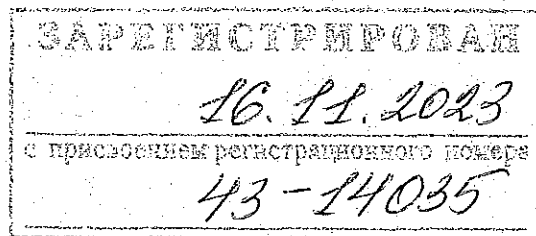 ЗАРЕГИСТРИРОВАН
16.11.2023
с присвоением регистрационного номера
43-14035